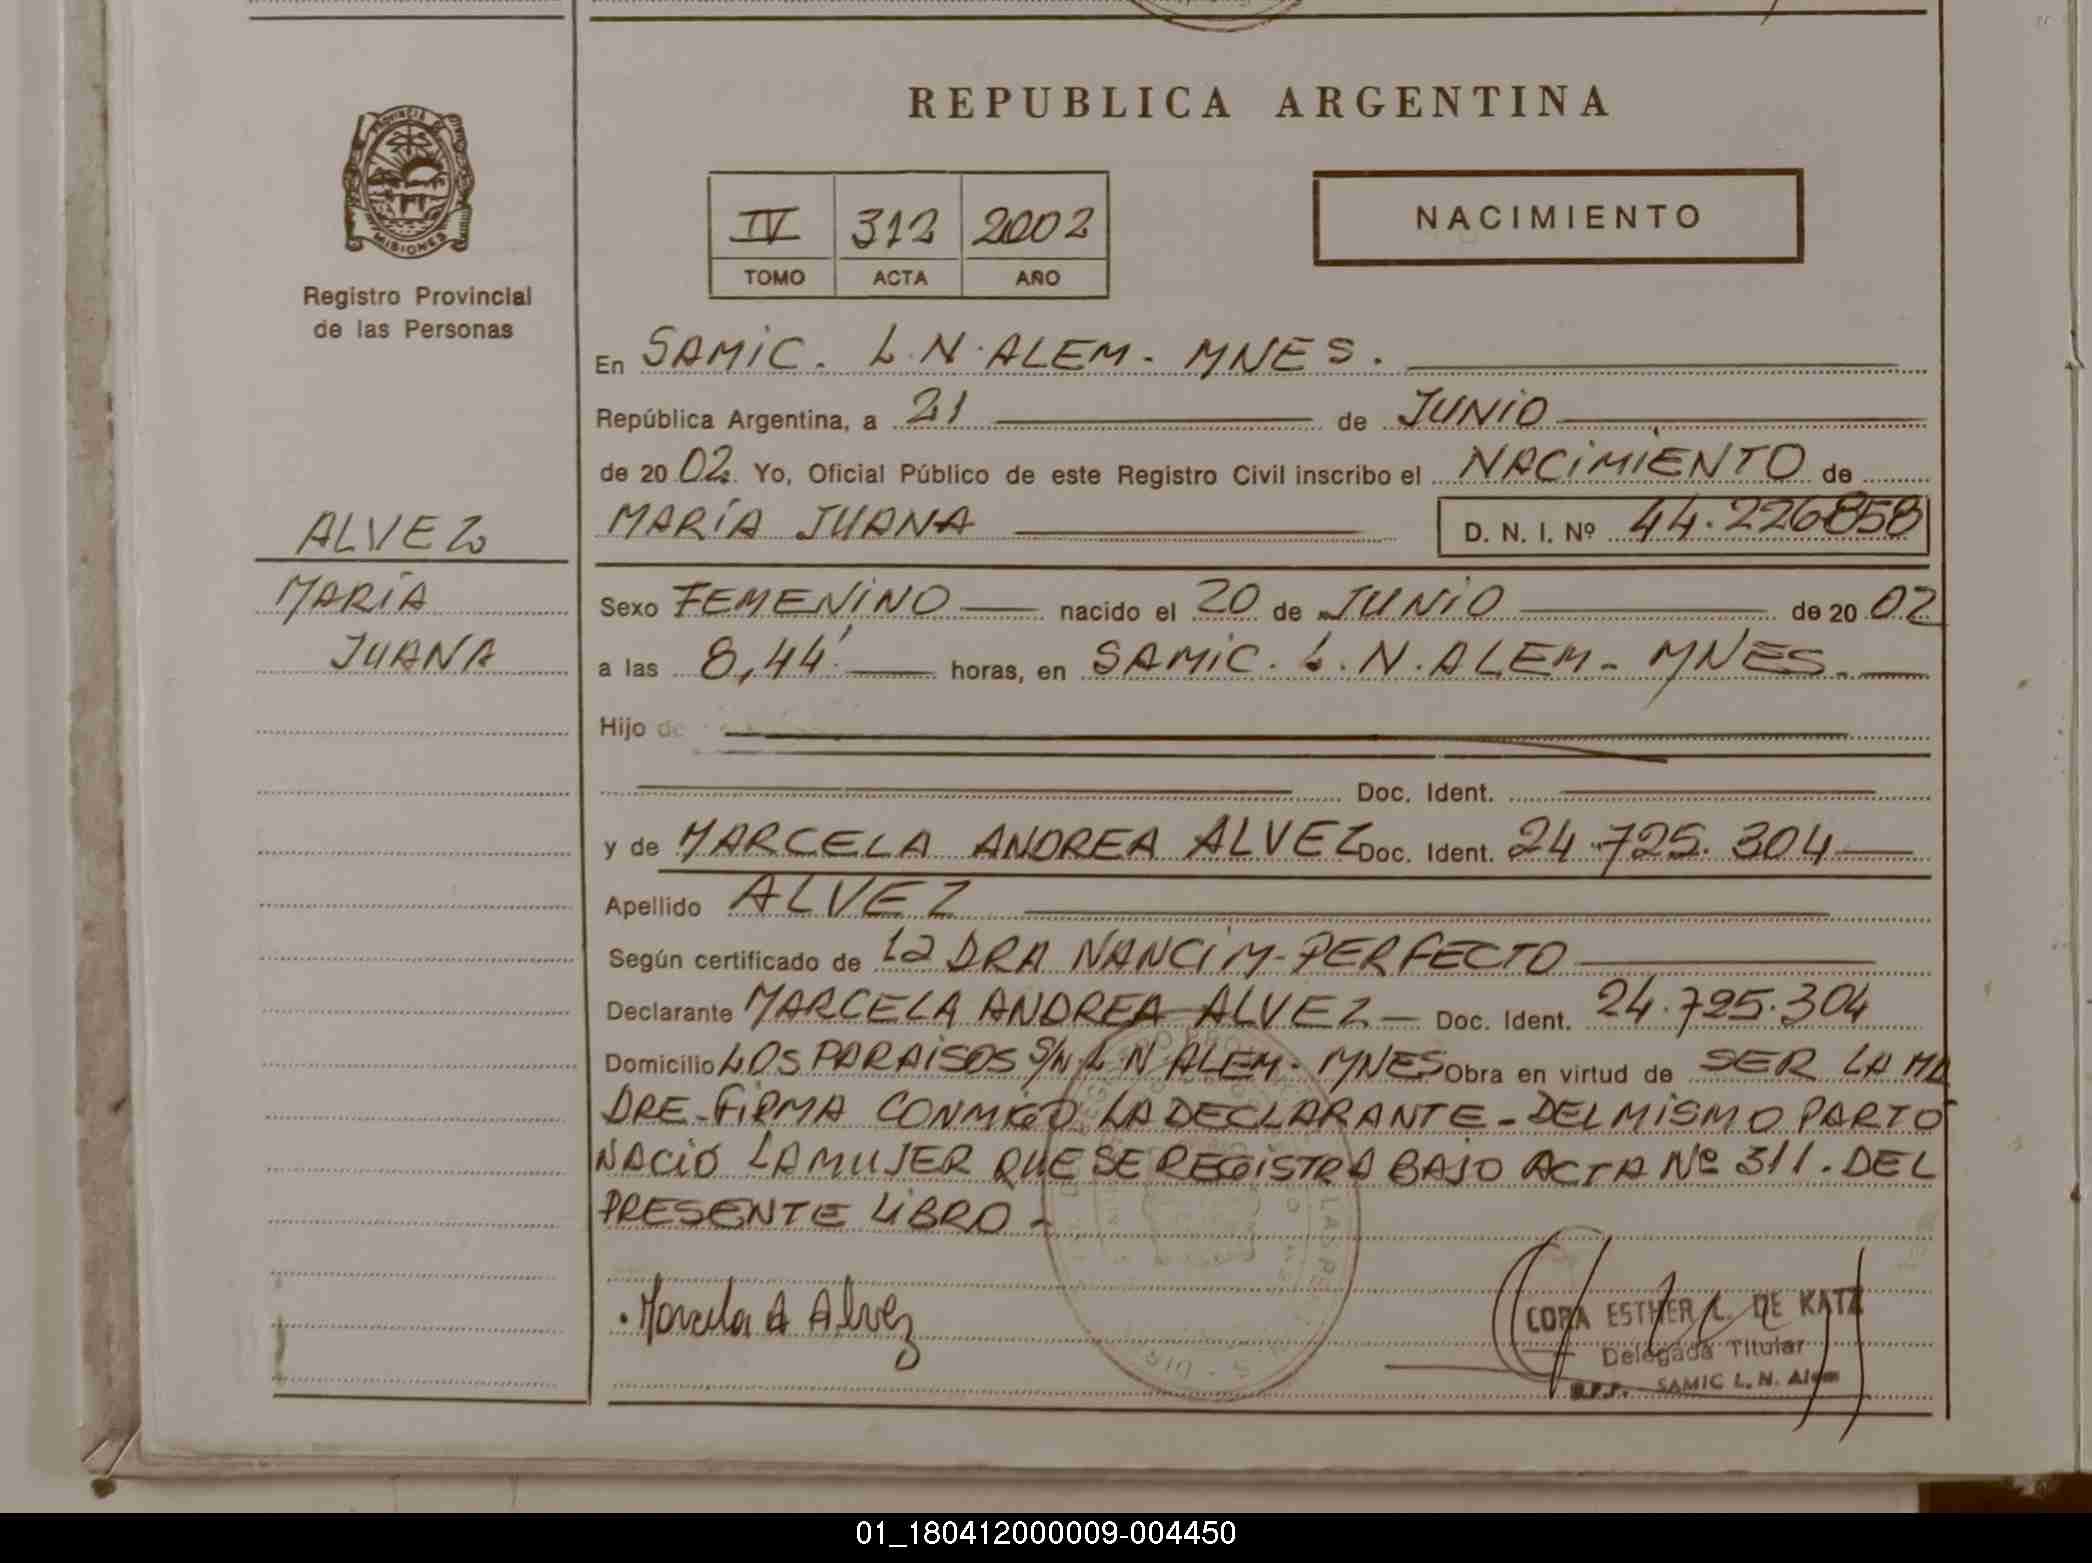 REPUBLICA ARGENTINA
PROVINCIA DE
MISIONES
Registro Provincial
de las Personas
IV 312 2002
TOMO ACTA AÑO
NACIMIENTO
En SAMIC. L.N. ALEM - MNES.
República Argentina, a 21 de JUNIO
de 20 02. Yo, Oficial Público de este Registro Civil inscribo el NACIMIENTO de
MARÍA JUANA D. N. I. Nº 44.226858
ALVEZ
MARÍA
JUANA
Sexo FEMENINO nacido el 20 de JUNIO de 20 02
a las 8,44' horas, en SAMIC. L.N. ALEM - MNES.
Hijo de
Doc. Ident.
y de MARCELA ANDREA ALVEZ Doc. Ident. 24.725.304
Apellido ALVEZ
Según certificado de La DRA NANCI M. PERFECTO
Declarante MARCELA ANDREA ALVEZ - Doc. Ident. 24.725.304
Domicilio LOS PARAISOS S/N L N ALEM - MNES Obra en virtud de SER LA MA
DRE - FIRMA CONMIGO LA DECLARANTE - DEL MISMO PARTO
NACIÓ LA MUJER QUE SE REGISTRA BAJO ACTA Nº 311. DEL
PRESENTE LIBRO -
Marcela A Alvez
CORA ESTHER L. DE KATZ
Delegada Titular
R.P.P. SAMIC L. N. Alem
01_180412000009-004450